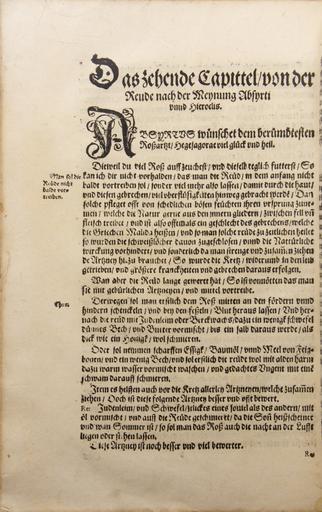 Das zehende Capittel/von der
Reude nach der Meynung Absyrti
vnnd Hieroclis.
ABSYRTVS wünschet dem berümbtesten
Roßartzt/ Hegesagorae viel glück vnd heil.
Dieweil du viel Roß auffzeuchest/ vnd dieselb teglich futterst/ So
kan ich dir nicht vorhalden/ das man die Reüd/ in dem anfang nicht
Man sol die
Reüde nicht
balde vor-
treiben.
baldt vortreiben sol/ sonder viel mehr also lassen/ damit durch die haut/
vnd diesen gebrechen/ viel vberflüssiges hinweg gebracht werde/ Dan
solche pfleget offt von schedlichen bösen früchten ihren vrsprung zune-
men/ welche die Natur gerne aus den innern gliedern/ zwischen fell vñ
fleisch treibet/ vnd ist also offtmals ein geschlecht des gebrechens/ welchs
die Griechen heissen/ vnd so man solche reude zu zeitlichen heilet
so wurden die schweißlöcher dauon zugeschlossen/ vnnd die Natürliche
wirckung vorhindert/ vnd sonderlich da man strenge vnd zusamen ziehende
Artzney hierzu brauchet/ So wurde die Kretz/ widerumb in den leib
getrieben/ vnd größere kranckheiten vnd gebrechen daraus erfolgen.
Wan aber die Reüd lange gewert hat/ So ist vonnöten das man
sie mit gebürlichen Artzneyen/ vnd mittel vortreibe.
Derwegen sol man erstlich dem Roß mitten an den fördern vnnd
hindern schenckeln/ vnd bey den fesseln/ Blut heraus lassen/ Vnd her-
nach die reüd mit Judenleim oder Berckwachs/ darzu ein wenig schwefel
dünnes Bech/ vnd Butter vormischt/ bis ein salb daraus werde/ als
dick wie ein Honigk/ wol schmieren.
Oder sol nemmen scharffen Essigk/ Baumöl/ vnnd Meel von Feig-
bonen/ vnd ein wenig Bech/ vnd sol erstlich die reüde wol mit alden harm
dazu warm wasser vormischt waschen/ vnd gedachtes Vngent mit eine
schwam darauff schmieren.
Item es helffen auch vor die Kretz allerley Artzneyen/ welche zusamen
ziehen/ Doch ist diese folgende Artzney besser vnd offt bewert.
Judenleim/ vnd Schwefel/ itlichs eines souiel als des andern/ mit
öl vormischt/ vnd auff die Reüde geschmiert/ da die Soñ heiß scheinet
vnd wan Sommer ist/ so sol man das Roß auch die nacht an der Lufft
ligen oder stehen lassen.
Diese Artzney ist noch besser vnd viel bewerter.